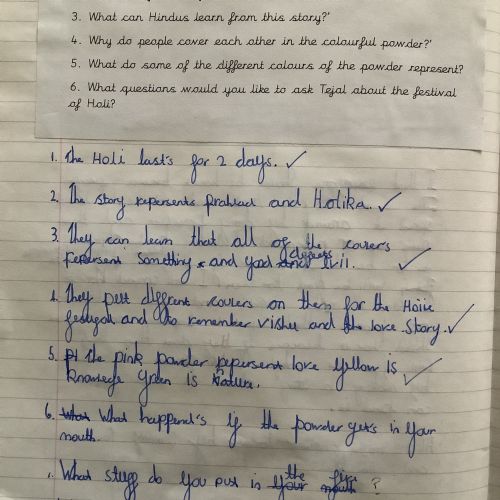 3. What can Hindus learn from this story?'
4. Why do people cover each other in the colourful powder?'
5. What do some of the different colours of the powder represent?
6. What questions would you like to ask Tejal about the festival
of Holi?
1. The Holi last's for 2 days. ✓
2. The story repersents prahlad and Holika. ✓
3. They can learn that all of the couers
repersent something and good defeats Evil. ✓
4. They put diffrent couers on them for the Holi
festival and to remember vishu and the love story. ✓
5. the pink powder repersent love yellow is
knowlege green is Nature. ✓
6. What happend's if the powder get's in your
mouth.
What stuff do you put in the fire ?